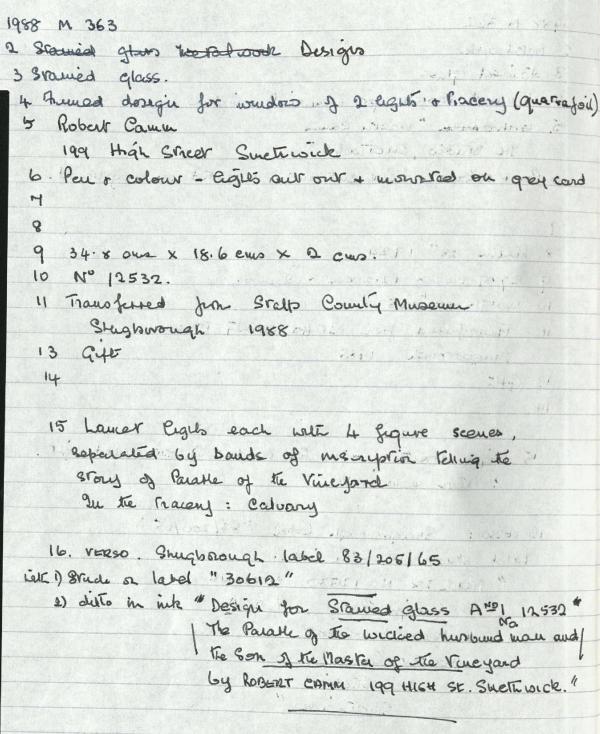 1988 M 363
2 Stained glass Designs
3 Stained glass.
4 Framed design for window of 2 lights & tracery (quatrefoil)
5 Robert Camm
199 High Street Smethwick
6. Pen & colour - lights cut out & mounted on grey card
7
8
9 34.8 cms x 18.6 cms x 2 cms.
10 No 12532.
11 Transferred from Staffs County Museum
Shugborough 1988
13 Gift
14
15 Lancet lights each with 4 figure scenes,
separated by bands of inscription telling the
story of Parable of the Vineyard
In the tracery: Calvary
16. VERSO. Shugborough label 83/205/65
1) Stuck on label "30612"
2) ditto in ink "Design for Stained Glass No 12532
The Parable of the wicked husband man and
the Son of the Master of the Vineyard
by ROBERT CAMM 199 HIGH ST. Smethwick."